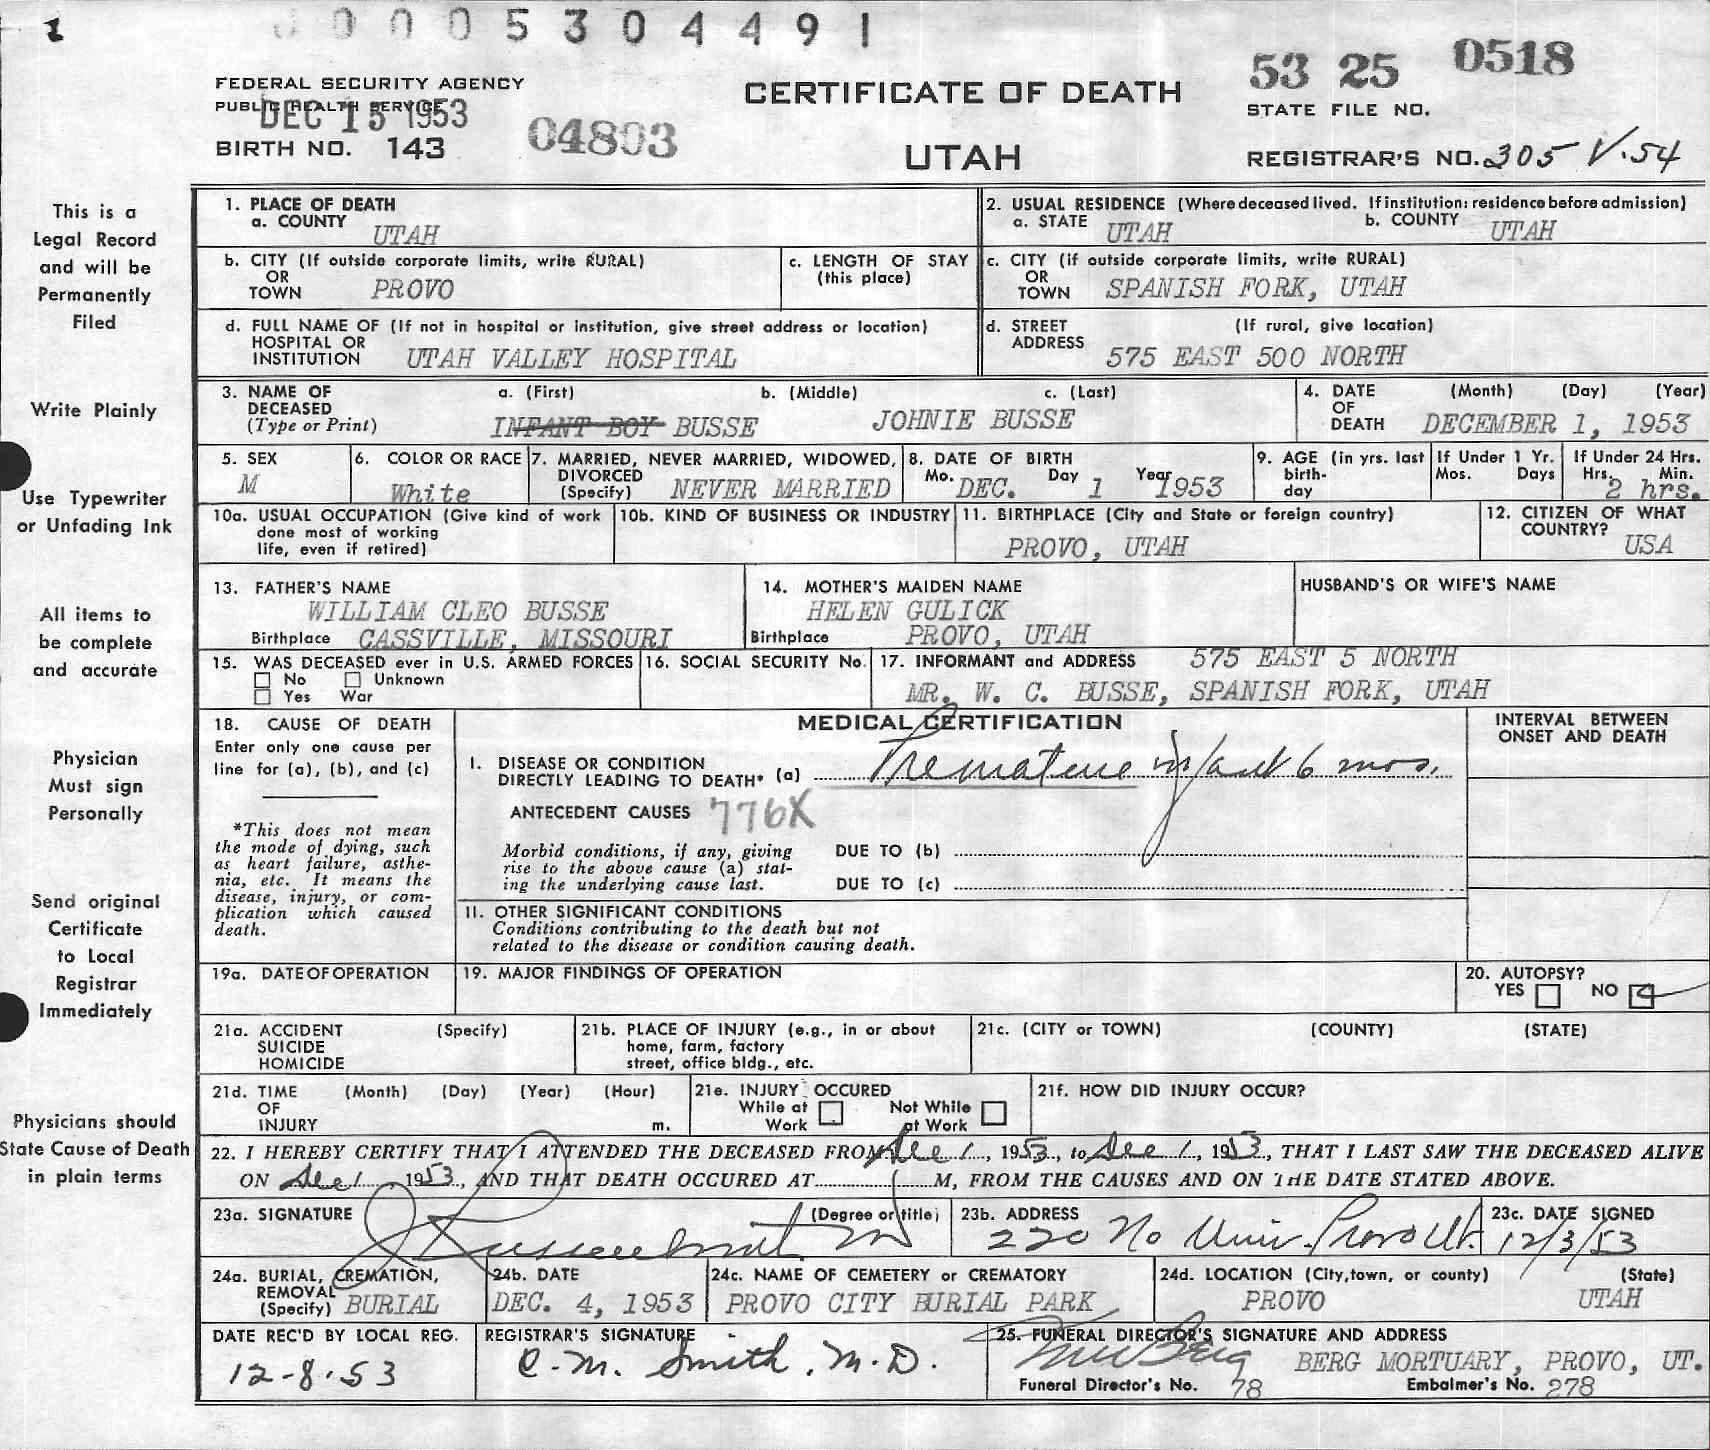 1
00005304491
FEDERAL SECURITY AGENCY
PUBLIC HEALTH SERVICE
DEC 15 1953
BIRTH NO. 143
04803
CERTIFICATE OF DEATH
UTAH
53 25 0518
STATE FILE NO.
REGISTRAR'S NO. 305 V.54
This is a
Legal Record
and will be
Permanently
Filed
Write Plainly
Use Typewriter
or Unfading Ink
All items to
be complete
and accurate
Physician
Must sign
Personally
Send original
Certificate
to Local
Registrar
Immediately
Physicians should
State Cause of Death
in plain terms
1. PLACE OF DEATH
a. COUNTY
UTAH
2. USUAL RESIDENCE (Where deceased lived. If institution: residence before admission)
a. STATE UTAH b. COUNTY UTAH
b. CITY (If outside corporate limits, write RURAL)
OR
TOWN PROVO
c. LENGTH OF STAY
(this place)
c. CITY (if outside corporate limits, write RURAL)
OR
TOWN SPANISH FORK, UTAH
d. FULL NAME OF (If not in hospital or institution, give street address or location)
HOSPITAL OR
INSTITUTION UTAH VALLEY HOSPITAL
d. STREET (If rural, give location)
ADDRESS
575 EAST 500 NORTH
3. NAME OF a. (First) b. (Middle) c. (Last)
DECEASED
(Type or Print) INFANT BOY BUSSE JOHNIE BUSSE
4. DATE (Month) (Day) (Year)
OF
DEATH DECEMBER 1, 1953
5. SEX
M
6. COLOR OR RACE
White
7. MARRIED, NEVER MARRIED, WIDOWED,
DIVORCED
(Specify) NEVER MARRIED
8. DATE OF BIRTH
Mo. DEC. Day 1 Year 1953
9. AGE (in yrs. last
birth-
day
If Under 1 Yr.
Mos. Days
If Under 24 Hrs.
Hrs. Min.
2 hrs.
10a. USUAL OCCUPATION (Give kind of work
done most of working
life, even if retired)
10b. KIND OF BUSINESS OR INDUSTRY
11. BIRTHPLACE (City and State or foreign country)
PROVO, UTAH
12. CITIZEN OF WHAT
COUNTRY?
USA
13. FATHER'S NAME
WILLIAM CLEO BUSSE
Birthplace CASSVILLE, MISSOURI
14. MOTHER'S MAIDEN NAME
HELEN GULICK
Birthplace PROVO, UTAH
HUSBAND'S OR WIFE'S NAME
15. WAS DECEASED ever in U.S. ARMED FORCES
No Unknown
Yes War
16. SOCIAL SECURITY No.
17. INFORMANT and ADDRESS 575 EAST 5 NORTH
MR. W. C. BUSSE, SPANISH FORK, UTAH
18. CAUSE OF DEATH
Enter only one cause per
line for (a), (b), and (c)
*This does not mean
the mode of dying, such
as heart failure, asthe-
nia, etc. It means the
disease, injury, or com-
plication which caused
death.
MEDICAL CERTIFICATION
INTERVAL BETWEEN
ONSET AND DEATH
I. DISEASE OR CONDITION
DIRECTLY LEADING TO DEATH* (a) Premature infant 6 mos.
ANTECEDENT CAUSES 776X
Morbid conditions, if any, giving
rise to the above cause (a) stat-
ing the underlying cause last.
DUE TO (b)
DUE TO (c)
II. OTHER SIGNIFICANT CONDITIONS
Conditions contributing to the death but not
related to the disease or condition causing death.
19a. DATE OF OPERATION
19. MAJOR FINDINGS OF OPERATION
20. AUTOPSY?
YES NO
21a. ACCIDENT (Specify)
SUICIDE
HOMICIDE
21b. PLACE OF INJURY (e.g., in or about
home, farm, factory
street, office bldg., etc.
21c. (CITY or TOWN) (COUNTY) (STATE)
21d. TIME (Month) (Day) (Year) (Hour)
OF
INJURY m.
21e. INJURY OCCURED
While at Work
Not While at Work
21f. HOW DID INJURY OCCUR?
22. I HEREBY CERTIFY THAT I ATTENDED THE DECEASED FROM Dec 1, 1953, to Dec 1, 1953, THAT I LAST SAW THE DECEASED ALIVE
ON Dec 1 1953, AND THAT DEATH OCCURED AT M, FROM THE CAUSES AND ON THE DATE STATED ABOVE.
23a. SIGNATURE (Degree or title)
23b. ADDRESS
220 No Univ. Provo Ut.
23c. DATE SIGNED
12/3/53
24a. BURIAL, CREMATION,
REMOVAL
(Specify) BURIAL
24b. DATE
DEC. 4, 1953
24c. NAME OF CEMETERY or CREMATORY
PROVO CITY BURIAL PARK
24d. LOCATION (City, town, or county) (State)
PROVO UTAH
DATE REC'D BY LOCAL REG.
12-8-53
REGISTRAR'S SIGNATURE
C. M. Smith, M.D.
25. FUNERAL DIRECTOR'S SIGNATURE AND ADDRESS
Berg BERG MORTUARY, PROVO, UT.
Funeral Director's No. 78 Embalmer's No. 278